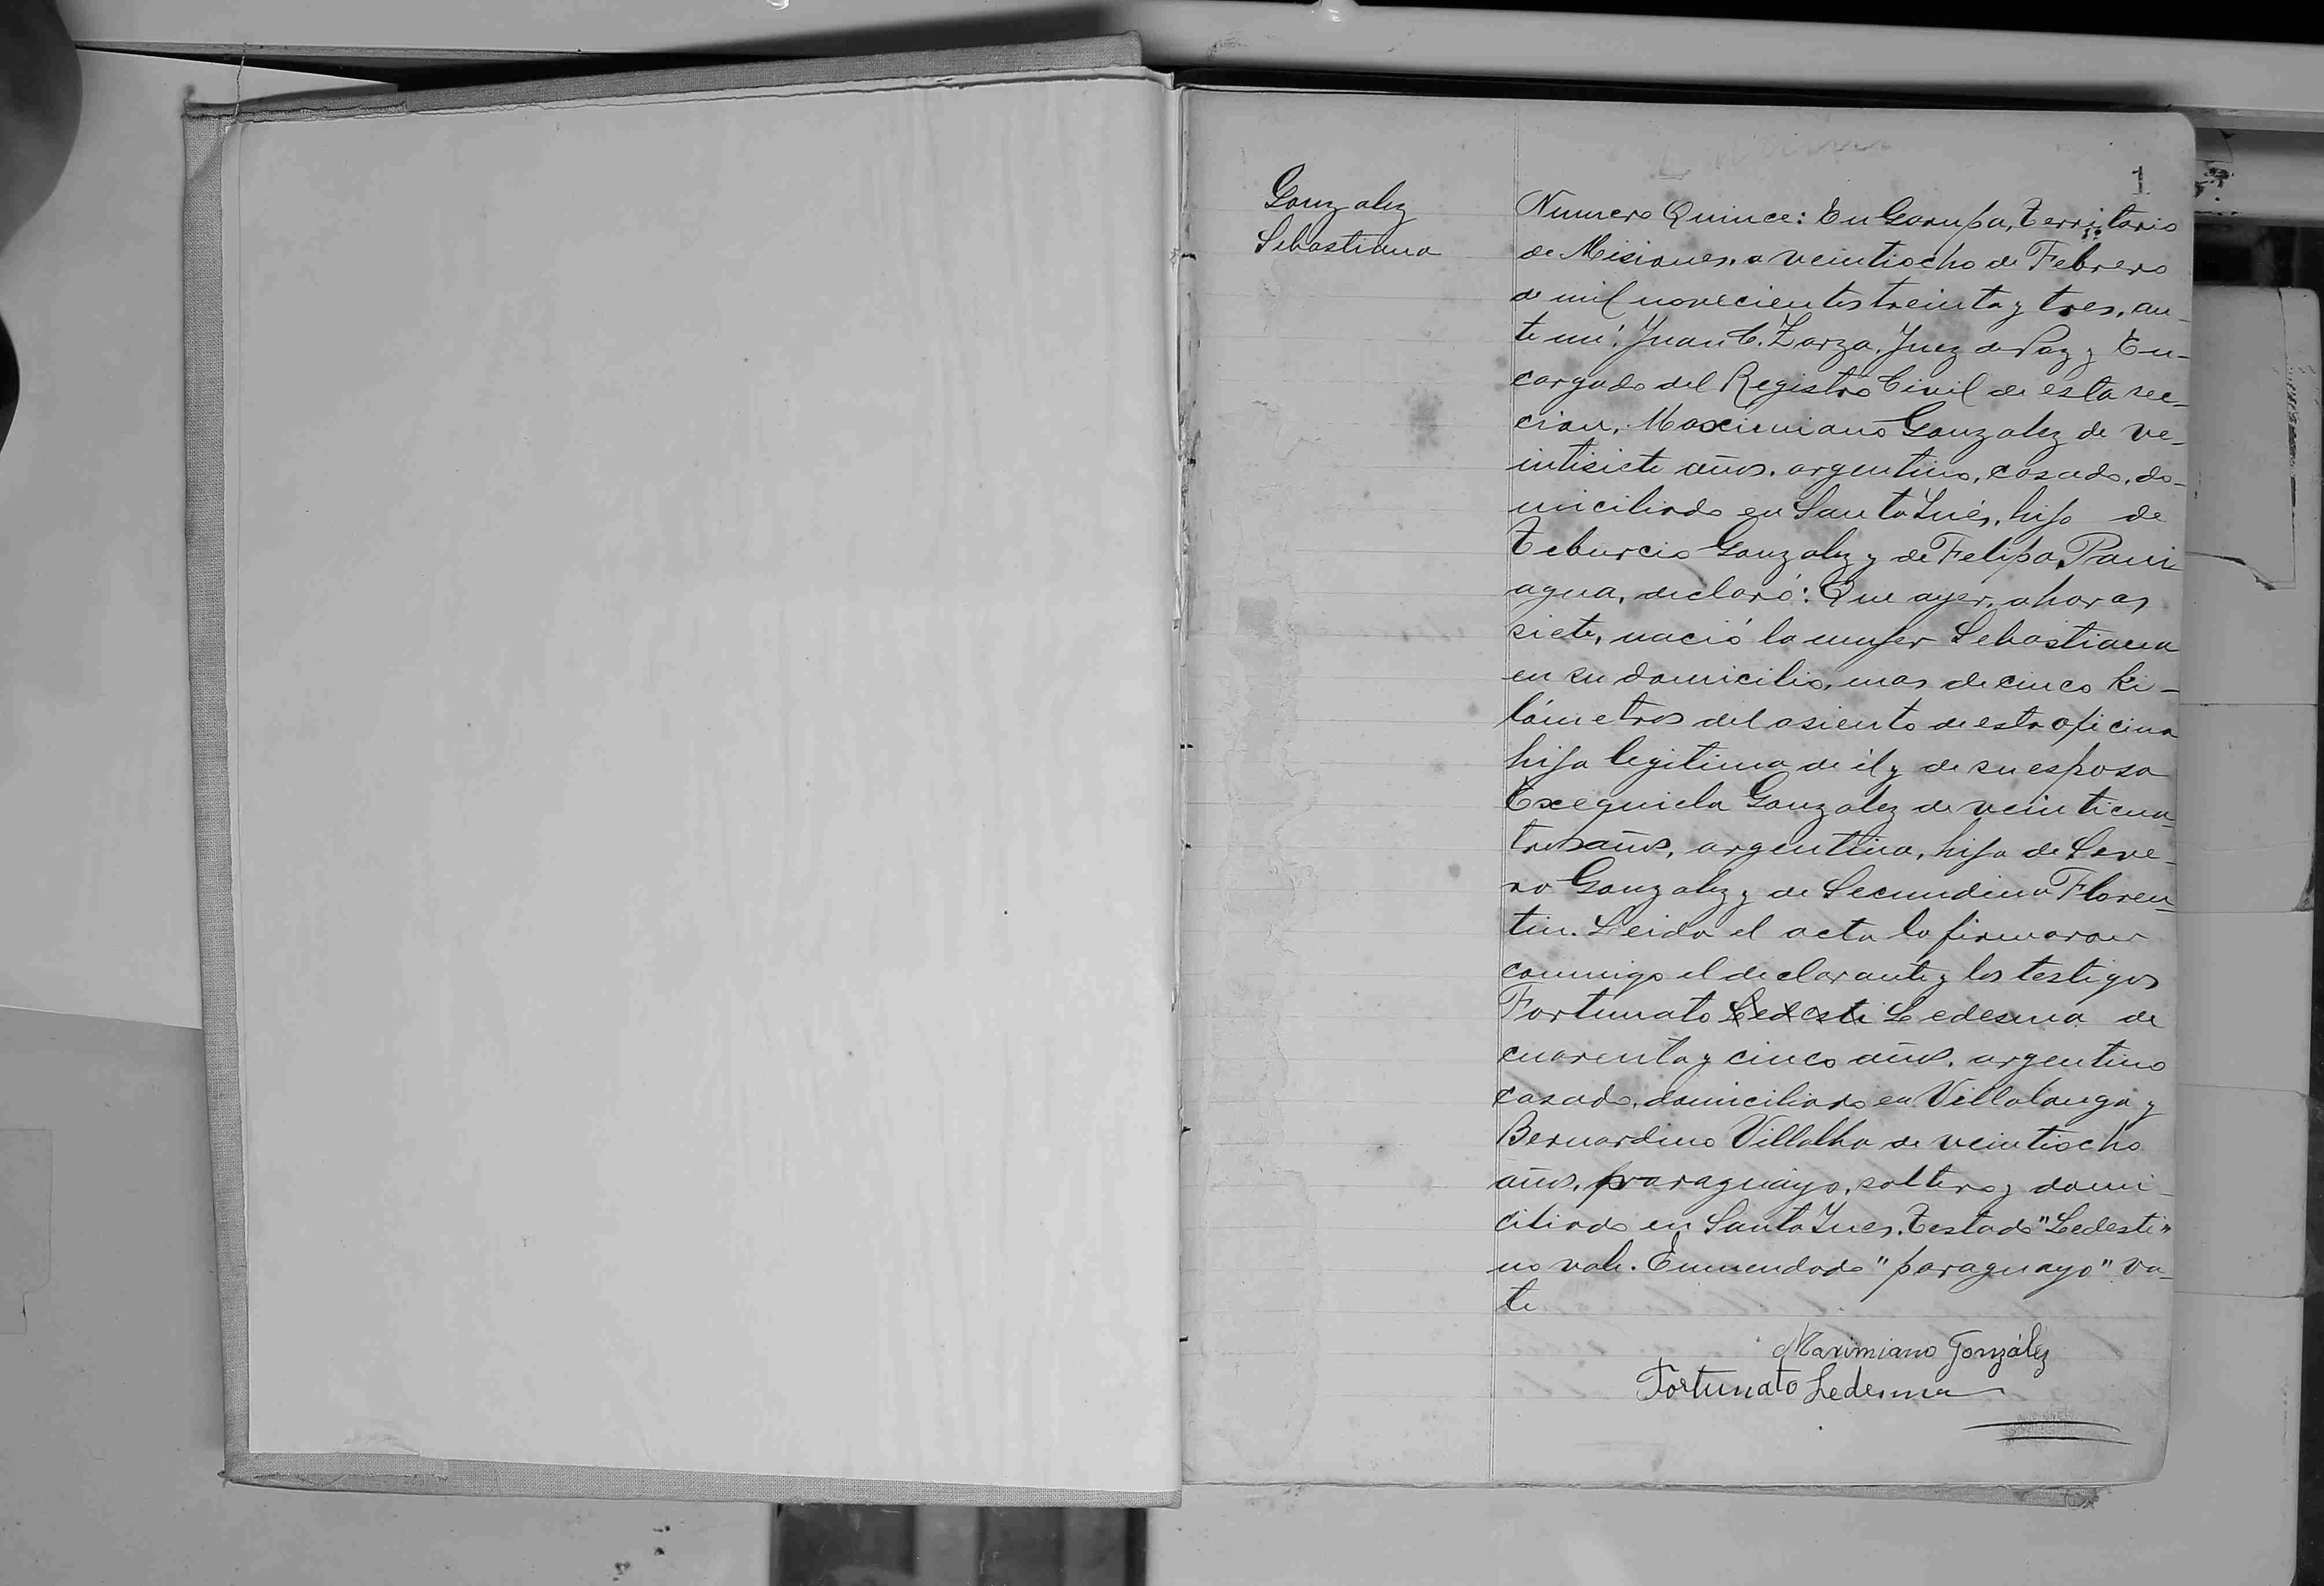 1
Gonzalez
Sebastiana
Numero Quince: En Garupa, Territorio
de Misiones, a veintiocho de Febrero
de mil novecientos treinta y tres, an-
te mi: Juan C. Zarza, Juez de Paz y En-
cargado del Registro Civil de esta sec-
cion, Maximiano Gonzalez de ve-
intisiete años, argentino, casado, do-
miciliado en Santa Inés, hijo de
Teburcio Gonzalez y de Felipa Pani
agua, declaró: Que ayer, a horas
siete, nació la mujer Sebastiana
en su domicilio, mas de cinco ki-
lómetros del asiento de esta oficina
hija legitima de él y de su esposa
Exequiela Gonzalez de veinticua-
tro años, argentina, hija de Seve-
ro Gonzalez y de Secundina Floren-
tin. Leida el acta la firmaron
conmigo el declarante y los testigos
Fortunato Ledesti Ledesma de
cuarenta y cinco años, argentino
casado, domiciliado en Villalonga y
Bernardino Villalba de veintiocho
años, paraguayo, soltero y domi-
ciliado en Santa Ines. Testado "Ledesti"
no vale. Enmendado "paraguayo" va-
le
Maximiano González
Fortunato Ledesma